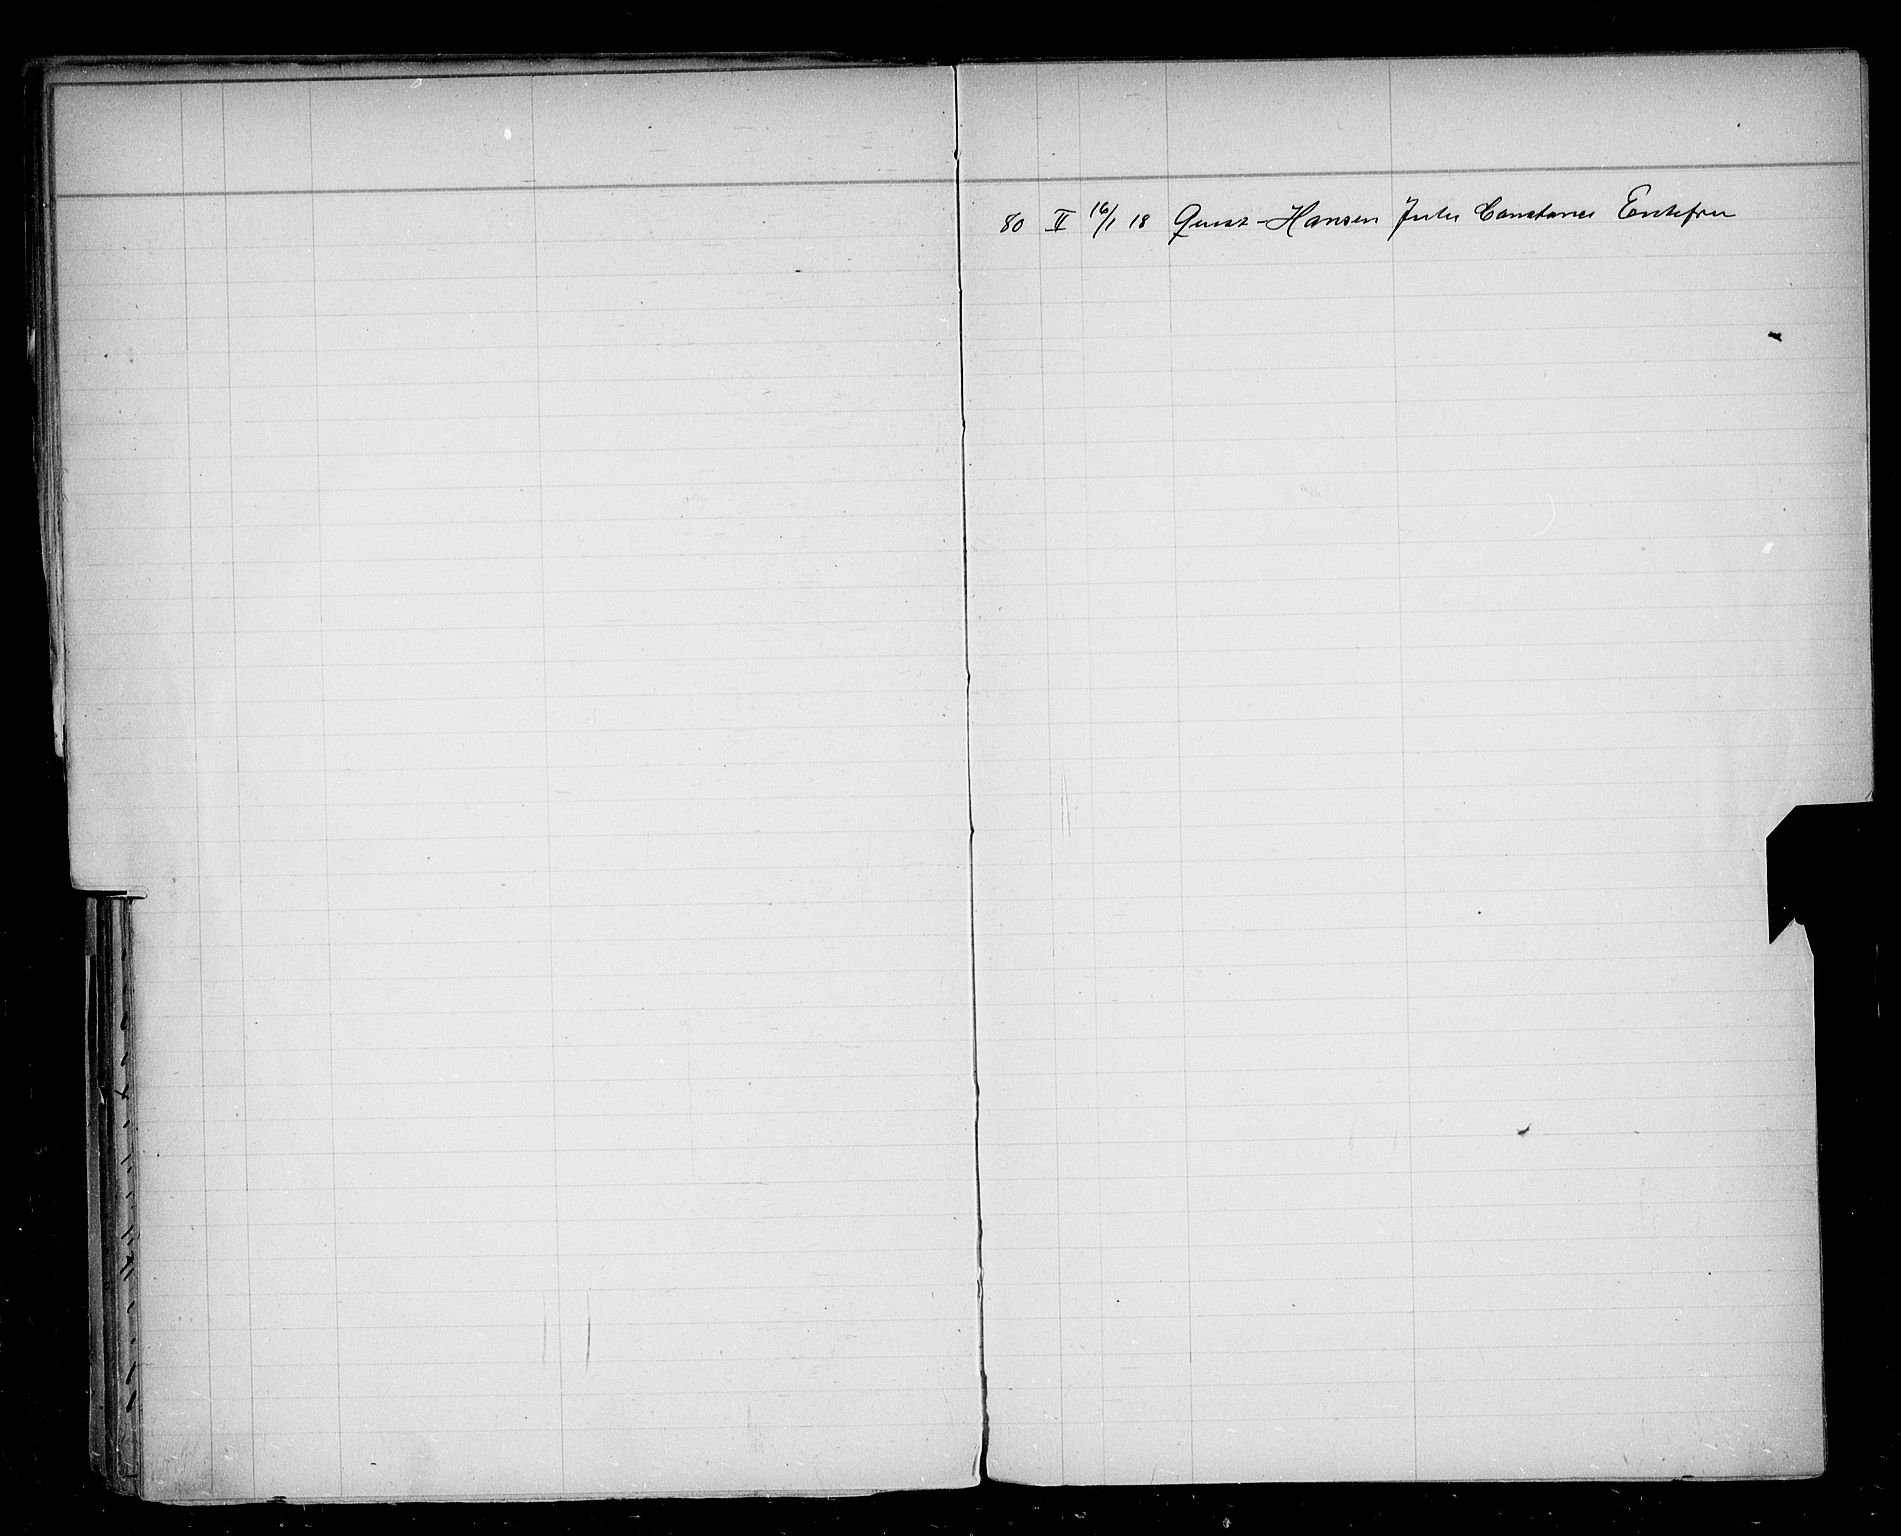 80 II 16/1 18 Qvist-Hansen Jules Constance Enkefru